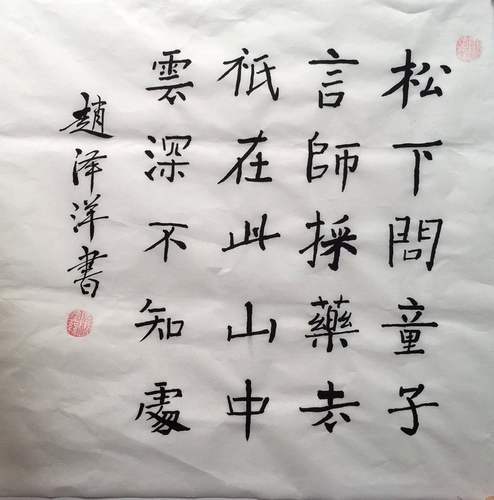 松下問童子
言師採藥去
祇在此山中
雲深不知處
趙泽洋書